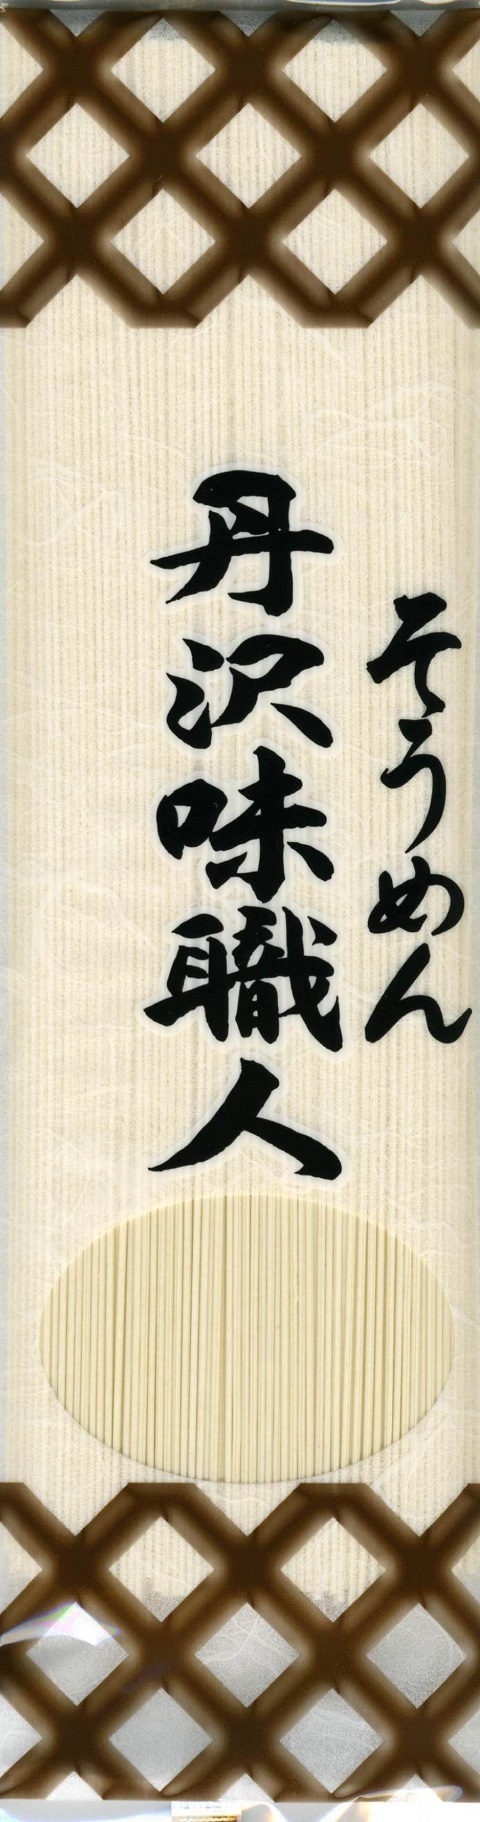 そうめん
丹沢味職人